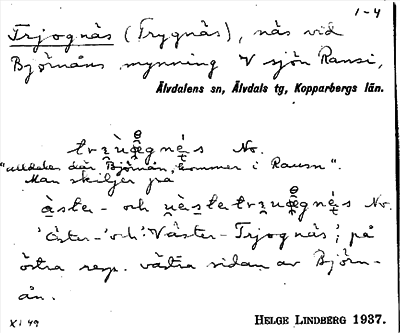 1-4
Trjognäs (Trygnäs), näs vid
Björnåns mynning V sjön Ransi,
Älvdalens sn, Älvdals tg, Kopparbergs län.
No.
"udden där Björnån kommer i Rausn".
Man skiljer på
àster- och No.
'Öster-' och 'Väster-Trjognäs', på
östra resp. västra sidan av Björn-
ån.
XI 49
HELGE LINDBERG 1937.